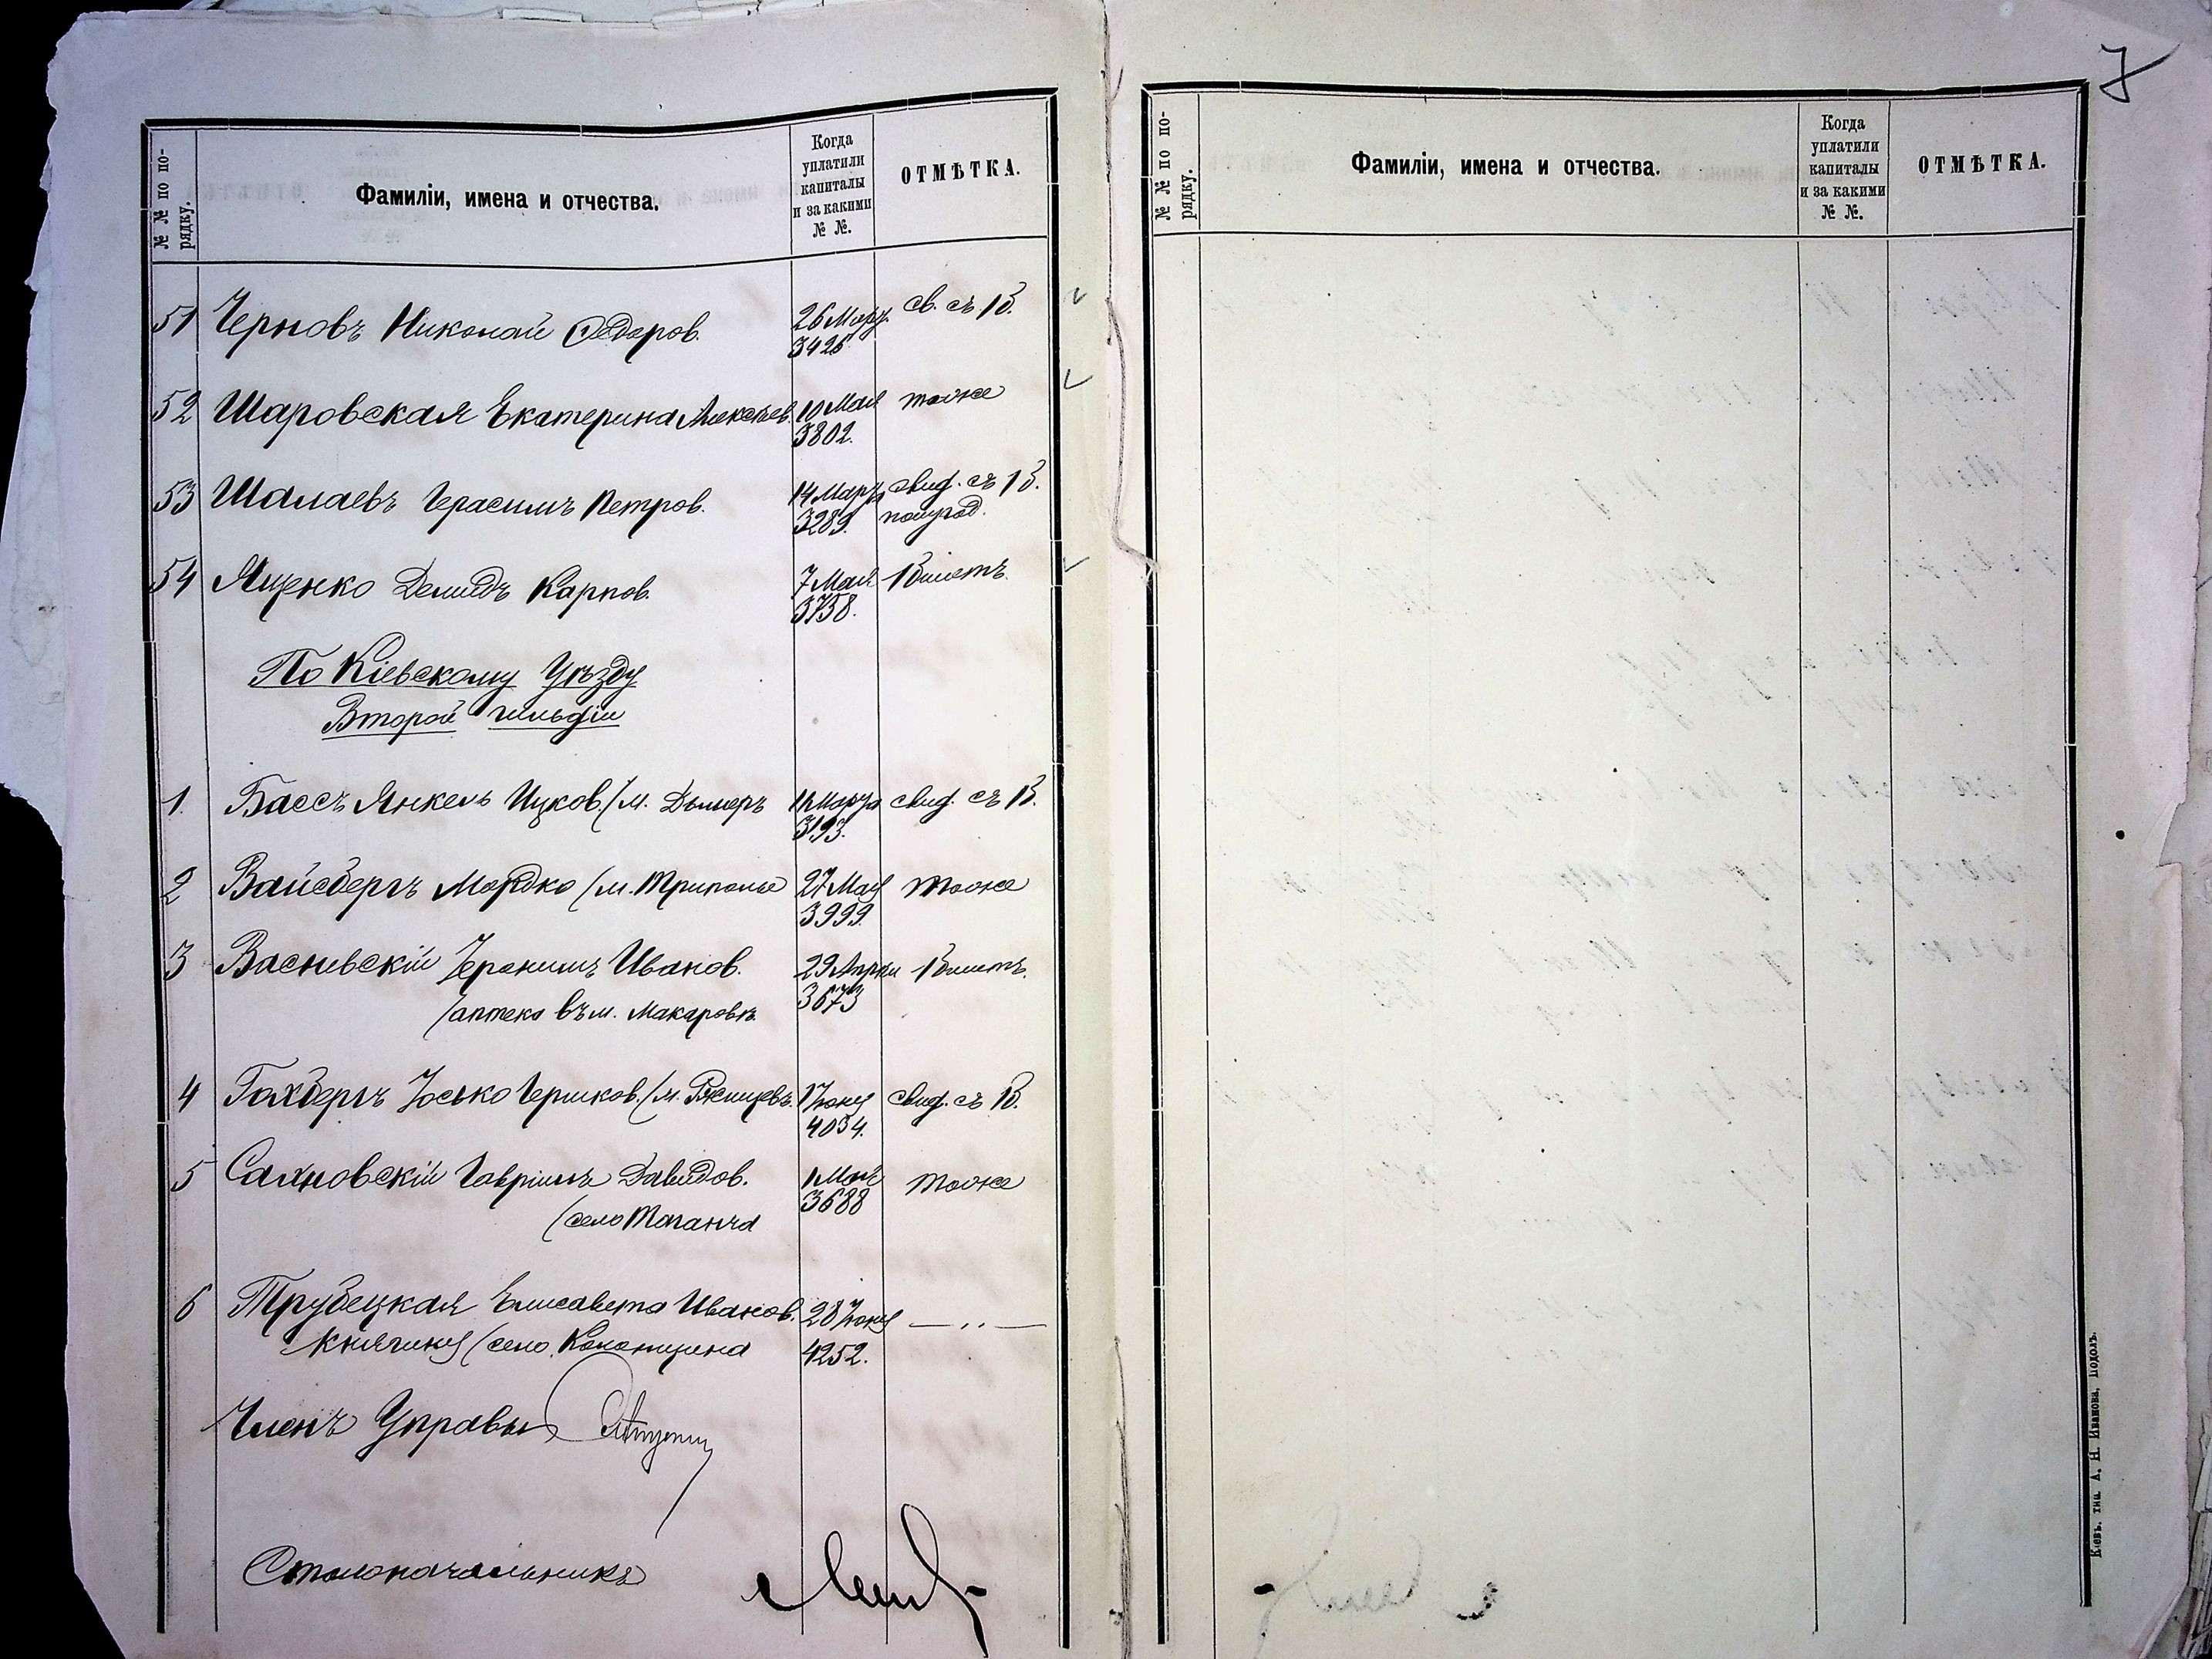 7
№ № по по-
рядку.
Фамиліи, имена и отчества.
Когда
уплатили
капиталы
и за какими
№ №.
ОТМѢТКА.
51 Черновъ Николай Ѳедоров. 26 Март. св. съ 1 б.
3426
52 Шаровская Екатерина Алексѣев. 10 Мая тоже
3802.
53 Шалаевъ Герасимъ Петров. 14 Марта свид. съ 1 б.
3289. полугод.
54 Яценко Демидъ Карпов. 7 Мая 1 билетъ.
3758.
По Кіевскому Уѣзду
Второй гильдіи
1. Бассъ Янкель Ицков. /м. Дымеръ 11 Марта свид. съ 1 б.
3193.
2 Вайсбергъ Мордко /м. Триполье 27 Мая тоже
3999.
3 Васневскій Іеронимъ Иванов. 29 Апрѣл 1 билетъ.
/аптека въ м. Макаровѣ 3673
4 Гохбергъ Іосько Гершков. /м. Ржищевъ. 1 Іюня свид. съ 1 б.
4034.
5 Сахновскій Гавріилъ Давидов. 1 Мая тоже
/село Таганча 3688
6 Трубецкая Елисавета Иванов. 28 Іюня — „ —
княгиня /село Колонщина 4252.
Членъ Управы
Столоначальникъ
№ № по по-
рядку.
Фамиліи, имена и отчества.
Когда
уплатили
капиталы
и за какими
№ №.
ОТМѢТКА.
Кіевъ. тип. А. Н. Иванова, Подолъ.